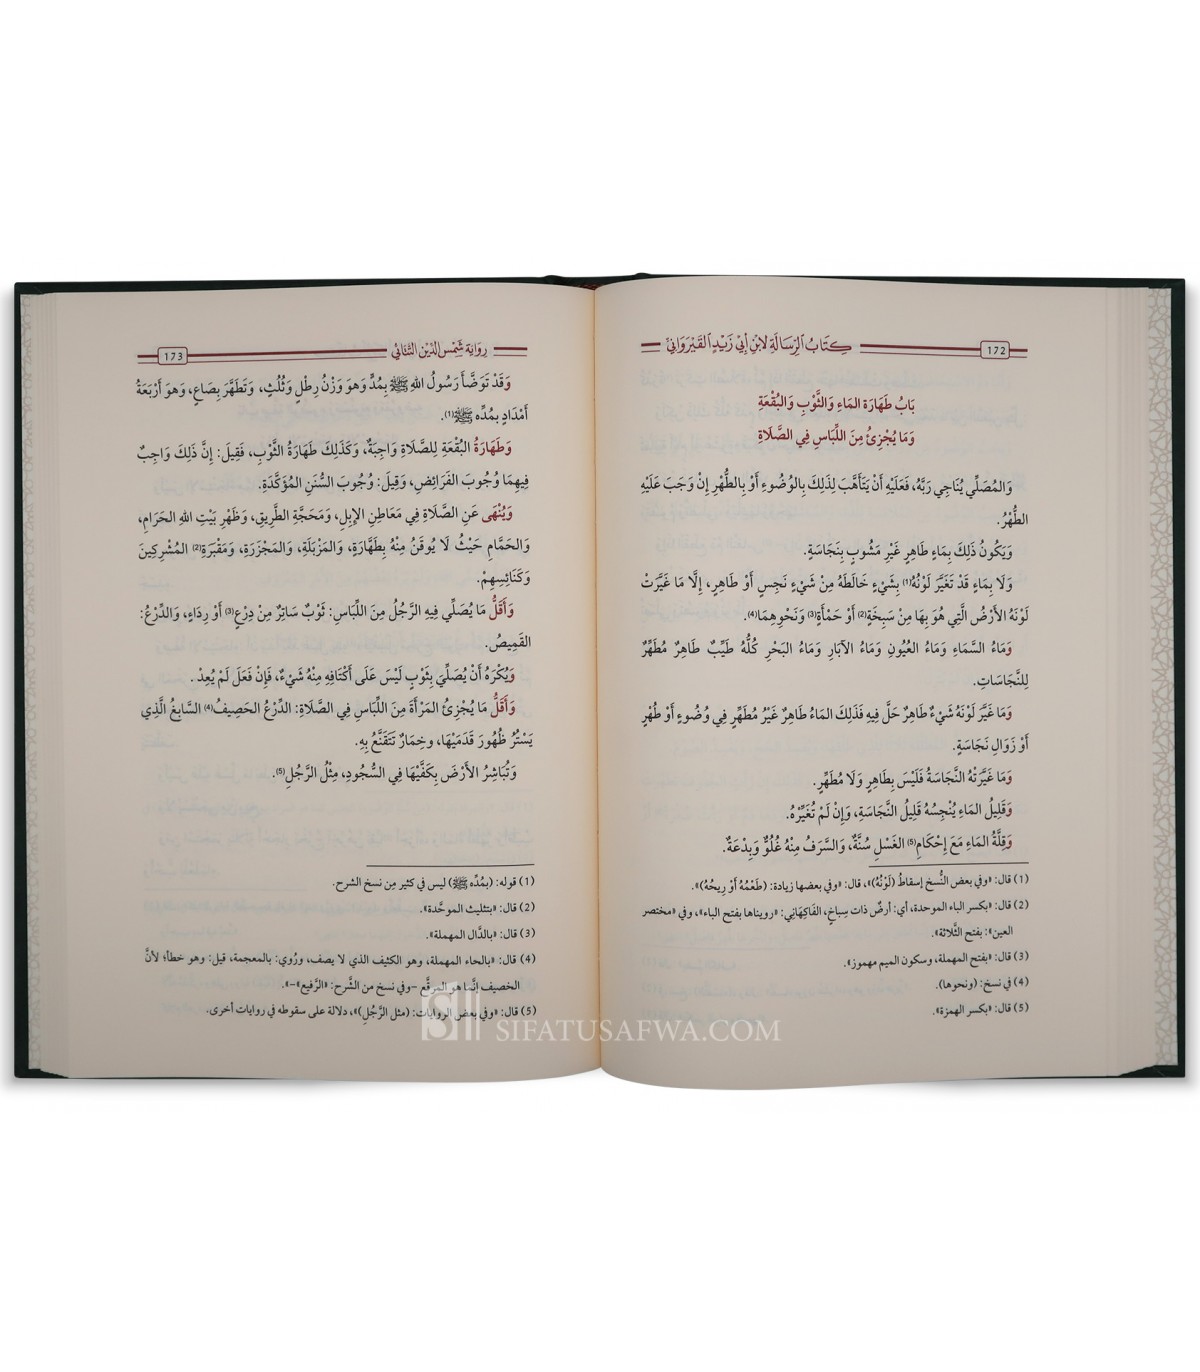 172
كِتَابُ الرِّسَالَةِ لابْنِ أَبِي زَيْدٍ القَيْرَوَانِيِّ
بَابُ طَهَارَة المَاءِ وَالثَّوْبِ وَالبُقْعَةِ
وَمَا يُجْزِئُ مِنَ اللِّبَاسِ فِي الصَّلَاةِ
وَالمُصَلِّي يُنَاجِي رَبَّهُ، فَعَلَيْهِ أَنْ يَتَأَهَّبَ لِذَلِكَ بِالوُضُوءِ أَوْ بِالطُّهْرِ إِنْ وَجَبَ عَلَيْهِ
الطُّهْرُ.
وَيَكُونُ ذَلِكَ بِمَاءٍ طَاهِرٍ غَيْرِ مَشُوبٍ بِنَجَاسَةٍ.
وَلَا بِمَاءٍ قَدْ تَغَيَّرَ لَوْنُهُ(1) بِشَيْءٍ خَالَطَهُ مِنْ شَيْءٍ نَجِسٍ أَوْ طَاهِرٍ، إِلَّا مَا غَيَّرَتْ
لَوْنَهُ الأَرْضُ الَّتِي هُوَ بِهَا مِنْ سَبِخَةٍ(2) أَوْ حَمْأَةٍ(3) وَنَحْوِهِمَا(4).
وَمَاءُ السَّمَاءِ وَمَاءُ العُيُونِ وَمَاءُ الآبَارِ وَمَاءُ البَحْرِ كُلُّهُ طَيِّبٌ طَاهِرٌ مُطَهِّرٌ
لِلنَّجَاسَاتِ.
وَمَا غَيَّرَ لَوْنَهُ شَيْءٌ طَاهِرٌ حَلَّ فِيهِ فَذَلِكَ المَاءُ طَاهِرٌ غَيْرُ مُطَهِّرٍ فِي وُضُوءٍ أَوْ طُهْرٍ
أَوْ زَوَالِ نَجَاسَةٍ.
وَمَا غَيَّرَتْهُ النَّجَاسَةُ فَلَيْسَ بِطَاهِرٍ وَلَا مُطَهِّرٍ.
وَقَلِيلُ المَاءِ يُنَجِسُهُ قَلِيلُ النَّجَاسَةِ، وَإِنْ لَمْ تُغَيِّرْهُ.
وَقِلَّةُ المَاءِ مَعَ إِحْكَامِ(5) الغَسْلِ سُنَّةٌ، وَالسَّرَفُ مِنْهُ غُلُوٌّ وَبِدْعَةٌ.
(1) قال: «وفي بعض النُّسخ إسقاطُ (لَوْنُهُ)»، قال: «وفي بعضها زيادة: (طَعْمُهُ أَوْ رِيحُهُ)».
(2) قال: «بكسر الباء الموحدة، أي: أرضٌ ذات سِباخٍ، الفَاكِهَانِي: «رويناها بفتح الباء»، وفي «مختصر
العين»: بفتح الثَّلاثة».
(3) قال: «بفتح المهملة، وسكون الميم مهموز».
(4) في نسخ: (ونحوها).
(5) قال: «بكسر الهمزة».
رِوَايَة شَمْسِ الدِّينِ التَّتَائِيِّ
173
وَقَدْ تَوَضَّأَ رَسُولُ اللهِ ﷺ بِمُدٍّ وَهوَ وَزْنُ رِطْلٍ وَثُلُثٍ، وَتَطَهَّرَ بِصَاعٍ، وَهوَ أَرْبَعَةُ
أَمْدَادٍ بمُدِّه ﷺ(1).
وَطَهَارَةُ البُقْعَةِ لِلصَّلَاةِ وَاجِبَةٌ، وَكَذَلِكَ طَهَارَةُ الثَّوْبِ، فَقِيلَ: إِنَّ ذَلِكَ وَاجِبٌ
فِيهِمَا وُجُوبَ الفَرَائِضِ، وَقِيلَ: وُجُوبَ السُّنَنِ المُؤَكَّدَةِ.
وَيُنْهَى عَنِ الصَّلَاةِ فِي مَعَاطِنِ الإِبِلِ، وَمَحَجَّةِ الطَّرِيقِ، وَظَهْرِ بَيْتِ اللهِ الحَرَامِ،
وَالحَمَّامِ حَيْثُ لَا يُوقَنُ مِنْهُ بِطَهَارَةٍ، وَالمَزْبَلَةِ، وَالمَجْزَرَةِ، وَمَقْبَرَةِ(2) المُشْرِكِينَ
وَكَنَائِسِهِمْ.
وَأَقَلُّ مَا يُصَلِّي فِيهِ الرَّجُلُ مِنَ اللِّبَاسِ: ثَوْبٌ سَاتِرٌ مِنْ دِرْعٍ(3) أَوْ رِدَاءٍ، وَالدِّرْعُ:
القَمِيصُ.
وَيُكْرَهُ أَنْ يُصَلِّيَ بِثَوْبٍ لَيْسَ عَلَى أَكْتَافِهِ مِنْهُ شَيْءٌ، فَإِنْ فَعَلَ لَمْ يُعِدْ.
وَأَقَلُّ مَا يُجْزِئُ المَرْأَةَ مِنَ اللِّبَاسِ فِي الصَّلَاةِ: الدِّرْعُ الحَصِيفُ(4) السَّابِغُ الَّذِي
يَسْتُرُ ظُهُورَ قَدَمَيْهَا، وخِمَارٌ تَتَقَنَّعُ بِهِ.
وَتُبَاشِرُ الأَرْضَ بِكَفَّيْهَا فِي السُّجُودِ، مِثْلُ الرَّجُلِ(5).
(1) قوله: (بمُدِّه ﷺ) ليس في كثير مِن نسخ الشرح.
(2) قال: «بتثليث الموحَّدة».
(3) قال: «بالدَّال المهملة».
(4) قال: «بالحاء المهملة، وهو الكثيف الذي لا يصف، ورُوي: بالمعجمة، قيل: وهو خطأ؛ لأنَّ
الخصيف إنَّما هو المرقَّع –وفي نسخ من الشَّرح: «الرَّفيع»–».
(5) قال: «وفي بعض الروايات: (مثل الرَّجُلِ)»، دلالة على سقوطه في روايات أخرى.
SIFATUSAFWA.COM